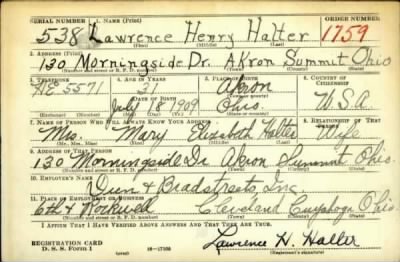 SERIAL NUMBER 1. NAME (Print) ORDER NUMBER
538 Lawrence Henry Halter 1759
(First) (Middle) (Last)
2. ADDRESS (Print)
130 Morningside Dr. Akron Summit Ohio
(Number and street or R. F. D. number) (Town) (County) (State)
3. TELEPHONE 4. AGE IN YEARS 5. PLACE OF BIRTH 6. COUNTRY OF CITIZENSHIP
HE 5571 31 Akron
DATE OF BIRTH (Town or county)
July 18 1909 Ohio. U.S.A.
(Exchange) (Number) (Mo.) (Day) (Yr.) (State or country)
7. NAME OF PERSON WHO WILL ALWAYS KNOW YOUR ADDRESS 8. RELATIONSHIP OF THAT PERSON
Mrs. Mary Elizabeth Halter Wife
(Mr., Mrs., Miss) (First) (Middle) (Last)
9. ADDRESS OF THAT PERSON
130 Morningside Dr. Akron Summit Ohio.
(Number and street or R. F. D. number) (Town) (County) (State)
10. EMPLOYER'S NAME
Dun & Bradstreets, Inc.
11. PLACE OF EMPLOYMENT OR BUSINESS
6th & Rockwell Cleveland Cuyahoga Ohio.
(Number and street or R. F. D. number) (Town) (County) (State)
I AFFIRM THAT I HAVE VERIFIED ABOVE ANSWERS AND THAT THEY ARE TRUE.
REGISTRATION CARD
D. S. S. Form 1 16—17105 Lawrence H. Halter
(Registrant's signature)